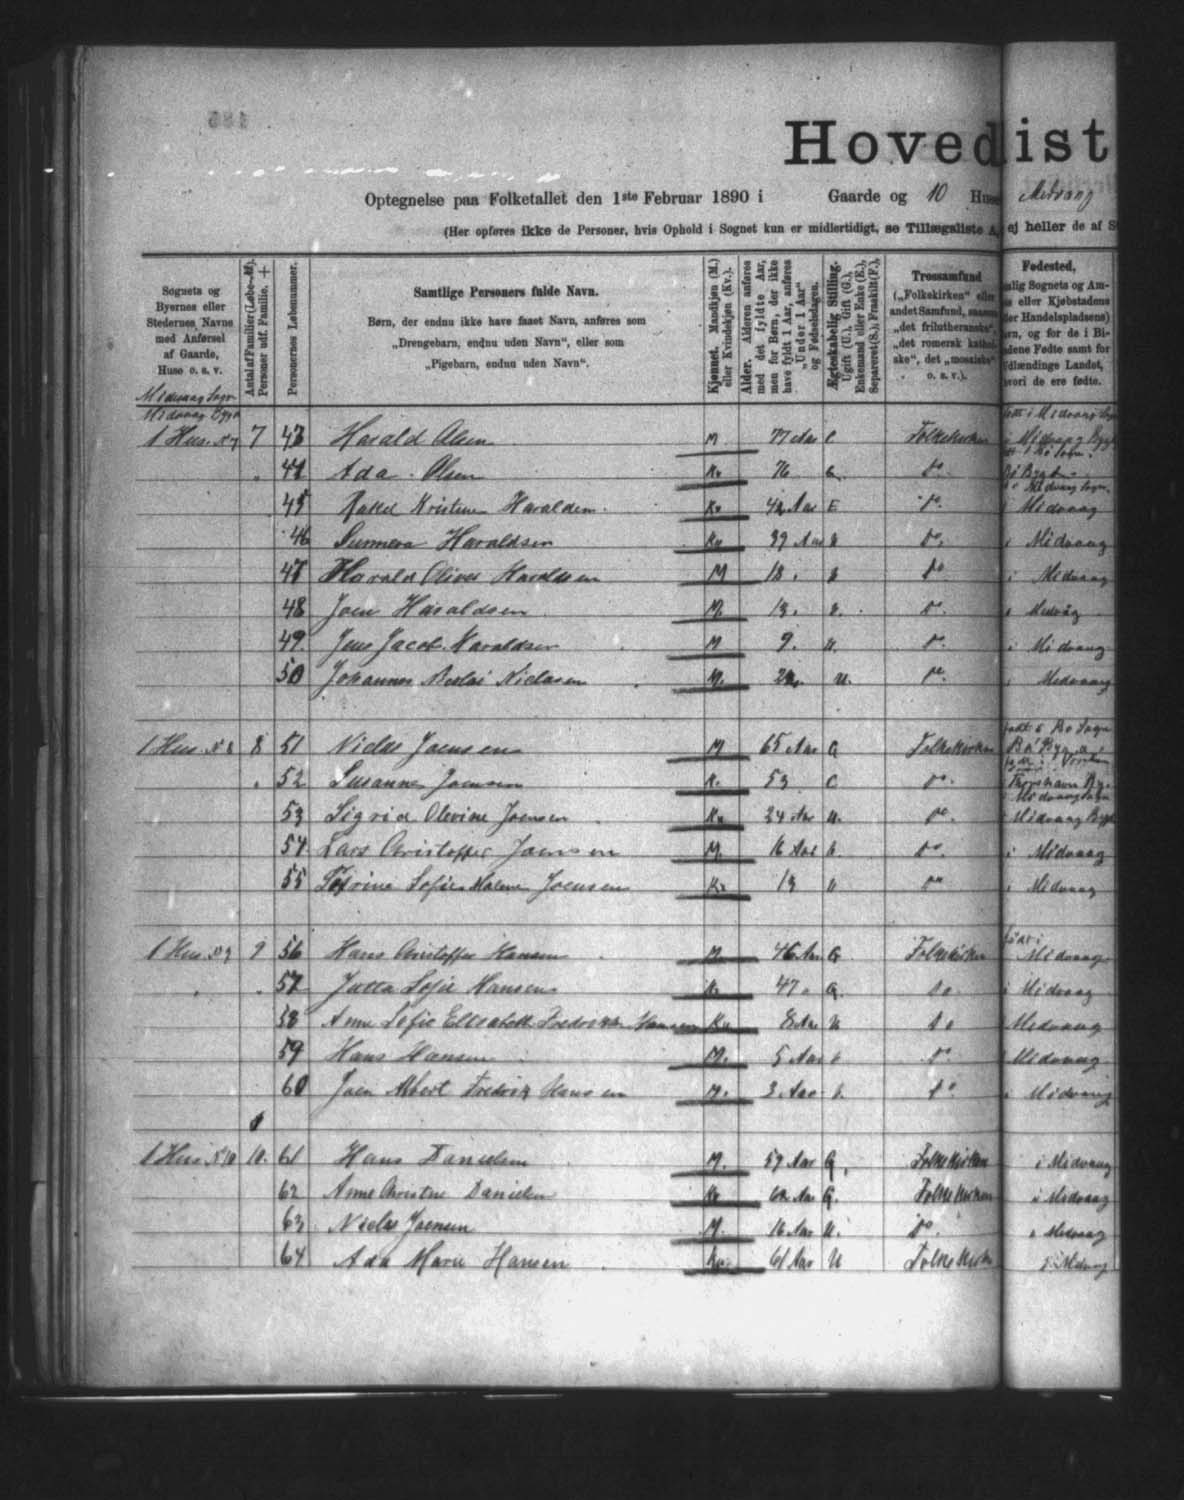 Hovedlist
Optegnelse paa Folketallet den 1ste Februar 1890 i Gaarde og 10 Huse Midvaag
(Her opføres ikke de Personer, hvis Ophold i Sognet kun er midlertidigt, se Tillægsliste A, ej heller de af S
Sognets og Byernes eller Stedernes Navne med Anførsel af Gaarde, Huse o. s. v.
Antal af Familier (Løbe-№). Personer udf. Familie. +
Personernes Løbenummer.
Samtlige Personers fulde Navn.
Børn, der endnu ikke have faaet Navn, anføres som
„Drengebarn, endnu uden Navn“, eller som
„Pigebarn, endnu uden Navn“.
Kjønnet. Mandkjøn (M.) eller Kvindekjøn (Kv.).
Alder. Alderen anføres med det fyldte Aar, men for Børn, der ikke have fyldt 1 Aar, anføres „Under 1 Aar“ og Fødselsdagen.
Ægteskabelig Stilling. Ugift (U.), Gift (G.), Enkemand eller Enke (E.), Separeret (S.), Fraskilt (F.),
Trossamfund („Folkekirken“ eller andet Samfund, saasom „det frilutheranske“, „det romersk kathol­ske“, det „mosaiske“ o. s. v.).
Fødested,
alig Sognets og Am-
s eller Kjøbstadens
ler Handelspladsens)
rn, og for de i Bi-
dene Fødte samt for
Udlændinge Landet,
hvori de ere fødte.
Midvaag Sogn
Midvaag Bygd
1 Hus. № 7 7 43 Harald Olsen M 77 Aar Folkekirken i Midvaag Bygd
44 Ada Olsen Kv 76 G. do.
45 Rakel Kristine Haraldsen Kv E do. i Midvaag
46 Sunneva Haraldsen Kv 39 Aar U do. i Midvaag
47 Harald Oliver Haraldsen M 18 U do. i Midvaag
48 Joen Haraldsen M. 13. U. do. i Midvaag
49. Jens Jacob Haraldsen M 9. U. do. i Midvaag
50 Johannes Nielasen M. U. do. i Midvaag
1 Hus. № 8 8 51 Niclas Joensen M 65 Aar G Folkekirken
52 Susanne Joensen K. 53 do.
53 Sigrid Olevine Joensen Kv 24 Aar U. do. Midvaag Bygd
54 Lars Christoffer Joensen M. 16 Aar U. do. i Midvaag
55 Sofie Malene Joensen Kv 13 U do i Midvaag
1 Hus. № 9 9 56 Hans Christoffer Hansen M. 46 Aar G Folkekirken Midvaag
57 Jutta Sofie Hansen K. 47 G. do. i Midvaag
58 Anne Sofie Elisabeth Fredrikke Hansen Kv 8 Aar U do Midvaag
59 Hans Hansen M. 5 Aar U do. i Midvaag
60 Joen Albert Fredrik Hansen M. 3 Aar U. do i Midvaag
1 Hus. № 10 10. 61 Hans Danielsen M. 59 Aar G. Folkekirken i Midvaag
62 Anne Christine Danielsen Kv Aar G. Folkekirken i Midvaag
63 Niclas Joensen M. 16 Aar U. do. i Midvaag
64 Ada Marie Hansen Kv. 61 Aar U Folkekirken i Midvaag